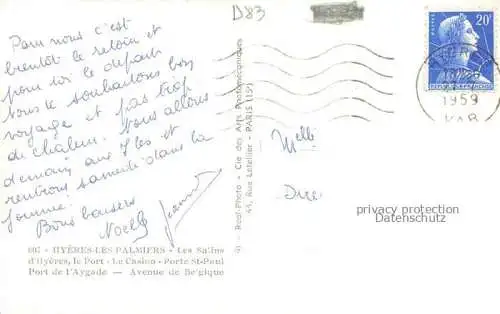 D83
Pour nous c'est
bientôt le retour et
pour toi le départ
Nous te souhaitons bon
voyage et pas trop
de chaleur. Nous allons
demain aux Iles et
rentrons samedi dans la
journée.
Bons baisers
Noëlle
807 - HYÈRES-LES PALMIERS - Les Salins
d'Hyères, le Port - Le Casino - Porte St-Paul
Port de l'Aygade — Avenue de Belgique
Real-Photo - Cie des Arts Photomécaniques
44, Rue Letellier - PARIS (15)
POSTES
20F
1959
VAR
Melle
privacy protection
Datenschutz